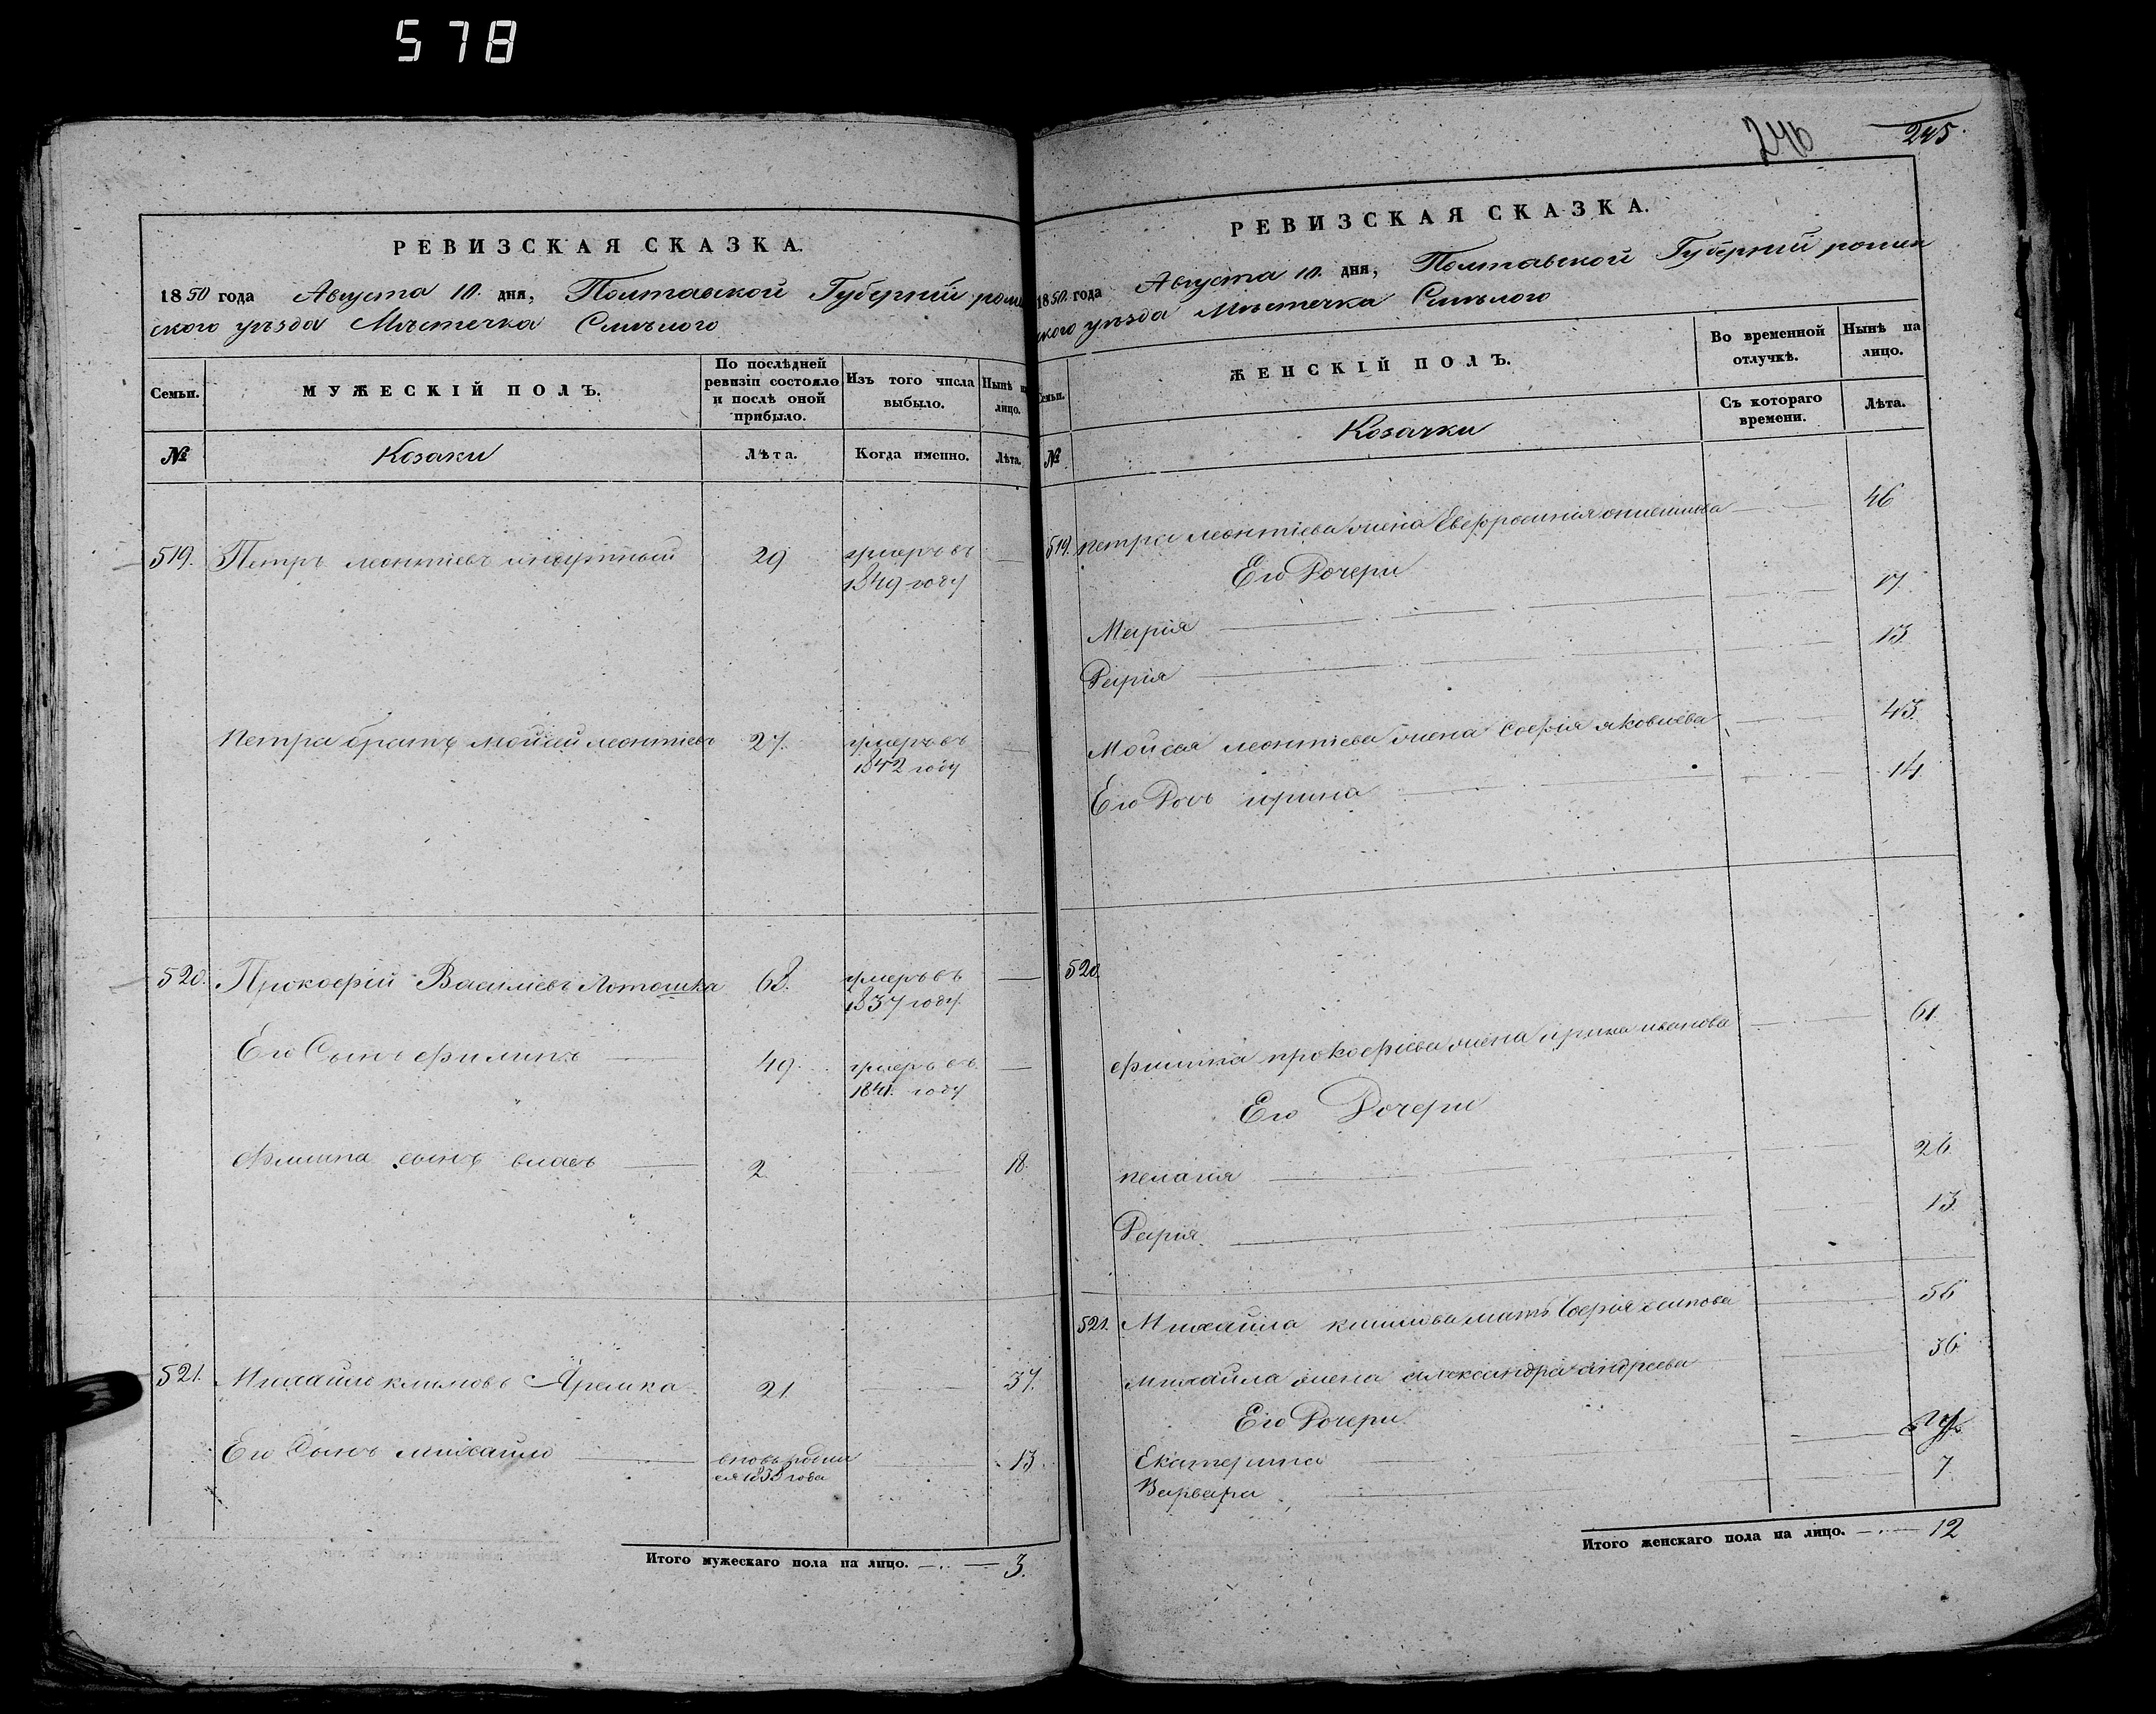 578
РЕВИЗСКАЯ СКАЗКА.
1850 года Августа 10. дня, Полтавской Губерніи ромен
ского уѣзда Мѣстечка Смѣлого
Семьи.
МУЖЕСКІЙ ПОЛЪ.
По послѣдней ревизіи состояло и послѣ оной прибыло.
Изъ того числа выбыло.
Нынѣ на лицо.
№
Козаки
Лѣта.
Когда именно.
Лѣта.
519. Петръ леонтіевъ 29 умеръ въ —
1849 году
петра братъ мойсей леонтіевъ 27. умеръ въ —
1842 году
520. Прокофій Василіевъ Лотошка 68. умеръ въ —
1837 году
Его Сынъ филипъ — 49. умеръ въ —
1841. году
филипа сынъ власъ — 2. — 18.
521. Михайло климовъ Яремка 21. — 37.
Его Сынъ михайло — вновь родил — 13.
ся 1838 года
Итого мужескаго пола на лицо. — 3.
246 245.
РЕВИЗСКАЯ СКАЗКА.
1850. года Августа 10. дня, Полтавской Губерніи ромен
ского уѣзда Мѣстечка Смѣлого
Семьи.
ЖЕНСКІЙ ПОЛЪ.
Во временной отлучкѣ.
Нынѣ на лицо.
№
Козачки
Съ котораго времени.
Лѣта.
519. петра леонтіева жена Евфросинія — 46
Его Дочери
Марія — 17.
Дарія — 13.
Мойсея леонтіева жена софія яковлева — 43.
Его Дочь ирина — 14.
520.
филипа прокофіева жена ирина иванова — 61.
Его Дочери
пелагия — 26.
Дарія — 13.
521. Михайла климова мать Софія осипова — 56
михайла жена александра андреева — 36.
Его Дочери
Екатерина —
Варвара — 7.
Итого женскаго пола на лицо. — 12